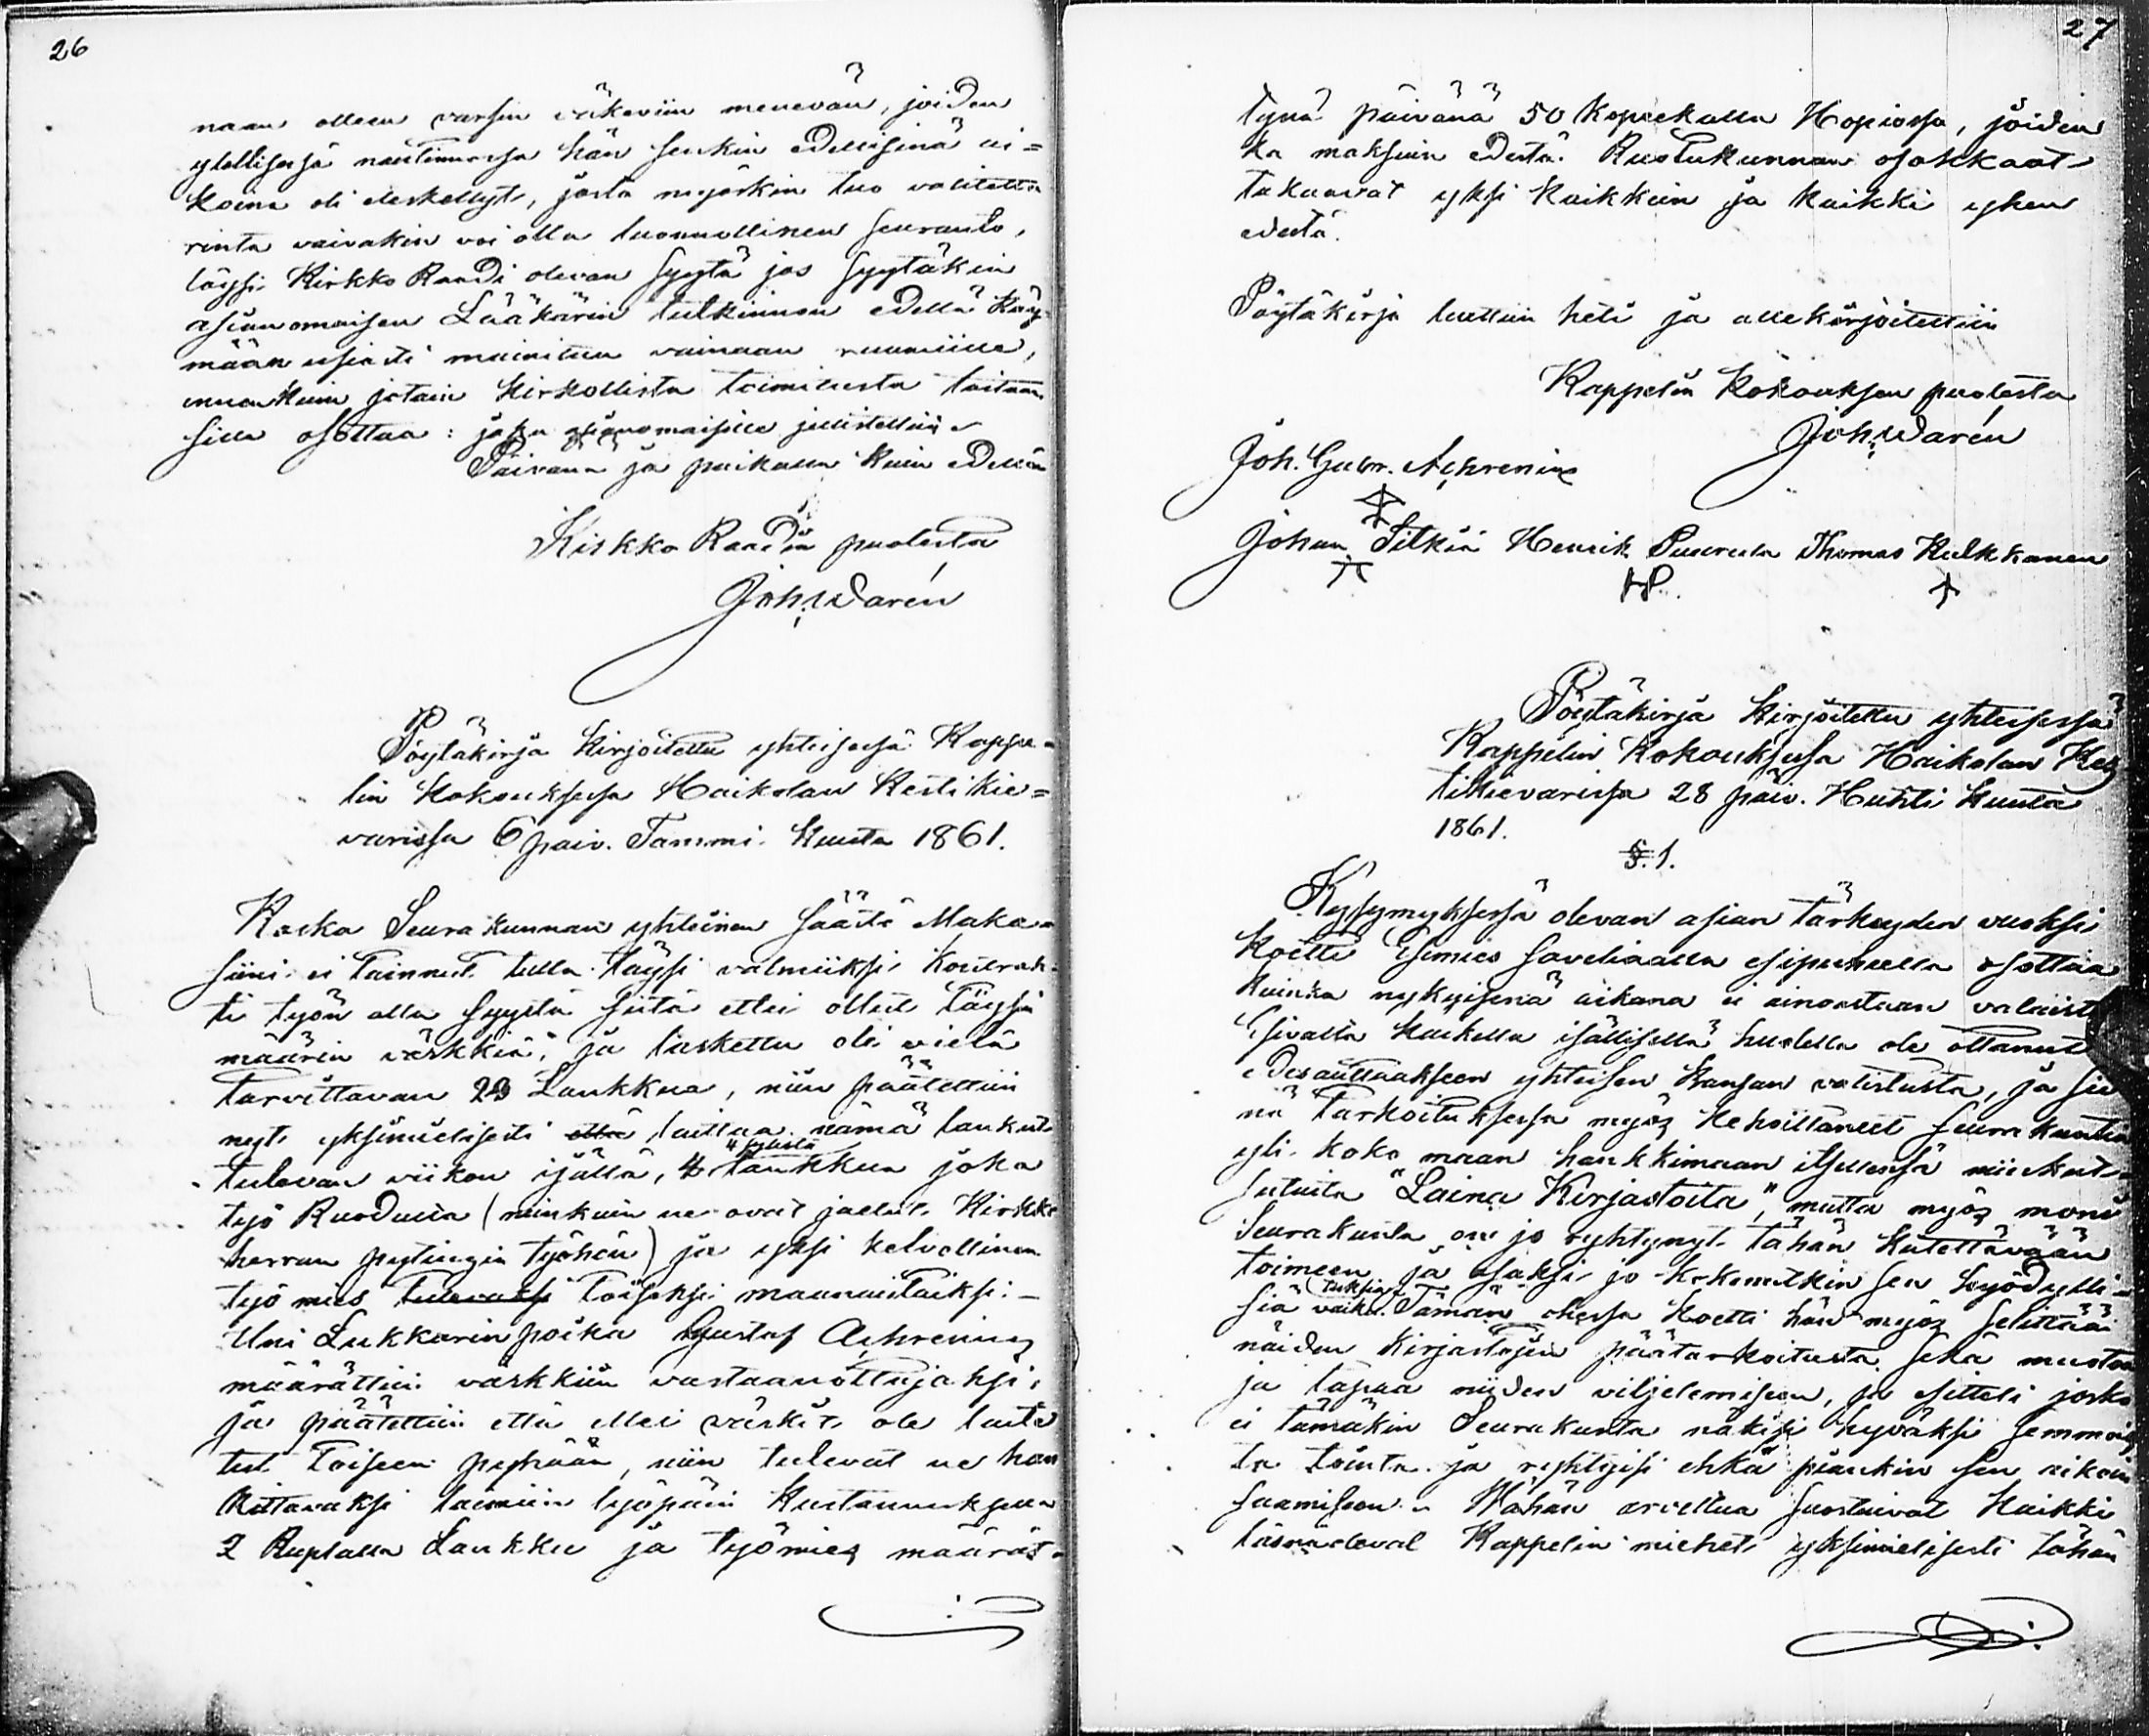 26
naan olleen varsin väkeviin menevän, joiden
ylellisessä nautinnossa hän senkin edellisinä ai=
koina oli eleskellyt, josta myöskin tuo valitettu
rinta vaivakin voi olla luonnollinen seuranto,
löysi Kirkko Raadi olevan syytä jos syytäkin
asianomaisen Lääkärin tutkinnon edellä käy-
mään mainitun vainaan ruumiilla,
ennenkuin jotain kirkollista toimitusta taitaan
sille osottaa: joka asianomaisille julistettiin
Päivänä ja paikalla kuin edellä
Kirkko Raadin puolesta
Joh. Warén
Pöytäkirja kirjoitettu yhteisessä Kappe-
lin Kokouksessa Haikolan Kestikie=
varissa 6 päiv. Tammi kuuta 1861.
Koska Seurakunnan yhteinen säästö Maka-
siini ei tainnut tulla täysi valmiiksi Kontrah-
ti työn alla syystä siitä ettei ollut täysin
määrin värkkiä, ja laskettu oli vielä
tarvittavan 23 Lankkua, niin päätettiin
nyt yksimielisesti että laittaa nämä lankut
4 sylistä
tulevan viikon ijällä, 4 lankkua joka
työ Ruodulla (niinkuin ne ovat jaetut Kirkko
herran pytingin työhön) ja yksi kelvollinen
työ mies tulevaksi toiseksi maanantaiksi:-
Uni Lukkarin poika Gustaf Achrenius
määrättiin värkkiin vastaanottajaksi,
ja päätettiin että ellei värkit ole laite-
tut toiseen pyhään, niin tulevat ne han
kittavaksi laimiin lyöpäin kustannuksella
2 Ruplalla Lankku ja työmies määrät-
27
tynä päivänä 50 kopeekalla Hopiossa, joiden
ka maksuin edestä Ruotukunnan osakkaat
takaavat yksi kaikkein ja kaikki yhen
edestä.
Pöytäkirja luettiin heti ja allekirjoitettiin
Kappelin Kokouksen puolesta
Joh. Warén
Joh. Gabr. Achrenius
Johan Pitkän Henrik Thomas Kulkkanen
HP.
Pöytäkirja kirjoitettu yhteisessä
Kappelin Kokouksessa Haikolan Kes
tikievarissa 28 päiv. Huhti kuuta
1861.
§. 1.
Kysymyksessä olevan asian tärkeyden vuoksi
koetti Esimies soveliaalla esipuheella osottaa
kuinka nykyisenä aikana ei ainoastaan valaist
Esivalta kaikella isällisellä huolella ole ottanut
edesauttaakseen yhteisen kansan valistusta, ja sii
nä tarkoituksessa myös kehoittaneet seurakuntia
yli koko maan hankkimaan itsellensä niin kut-
sutuita "Laina Kirjastoita", mutta myös moni
Seurakunta on jo ryhtynyt tähän kiitettävään
toimeen ja osaksi jo kokenutkin sen hyödylli-
tuksia
siä vaiku. Tämän ohessa koetti hän myös selittää
näiden Kirjastojen päätarkoitusta sekä muotoa
ja tapaa niiden viljelemiseen, ja esitteli josko
ei tämäkin Seurakunta näkisi hyväksi semmois
ta tointa ja ryhtyisi ehkä piankin sen aikain
saamiseen. Vähän arveltua suostuivat kaikki
läsnäolevat Kappelin miehet yksimielisesti tähän